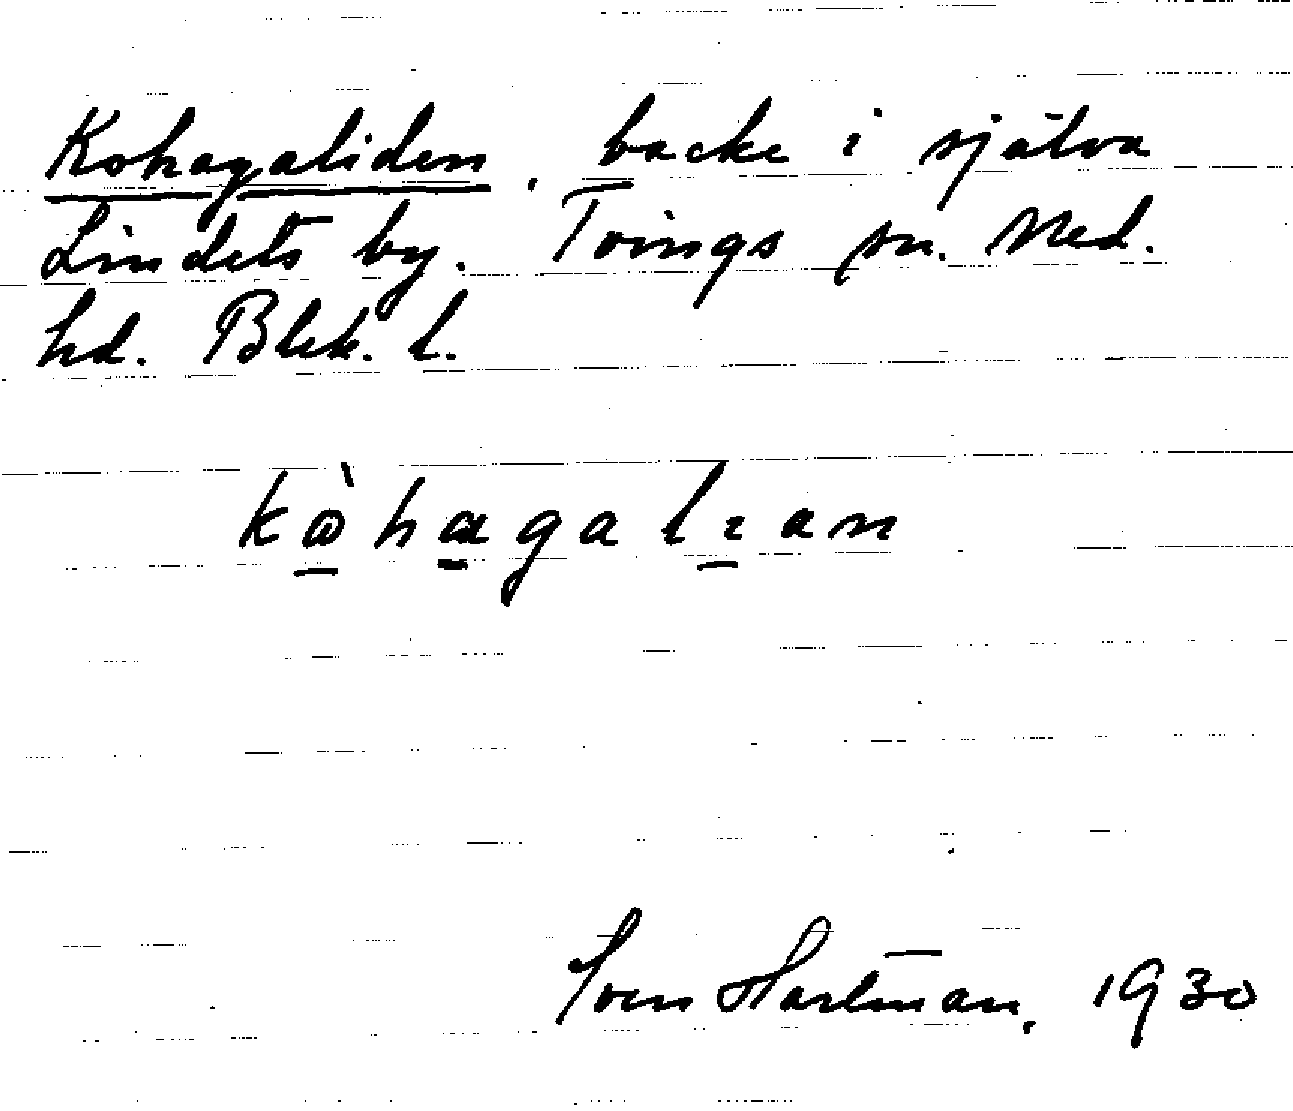 Kohagaliden, backe i själva
Lindets by. Tvings sn. Med.
hd. Blek. l.
kòhagalıan
Sven Hartman, 1930